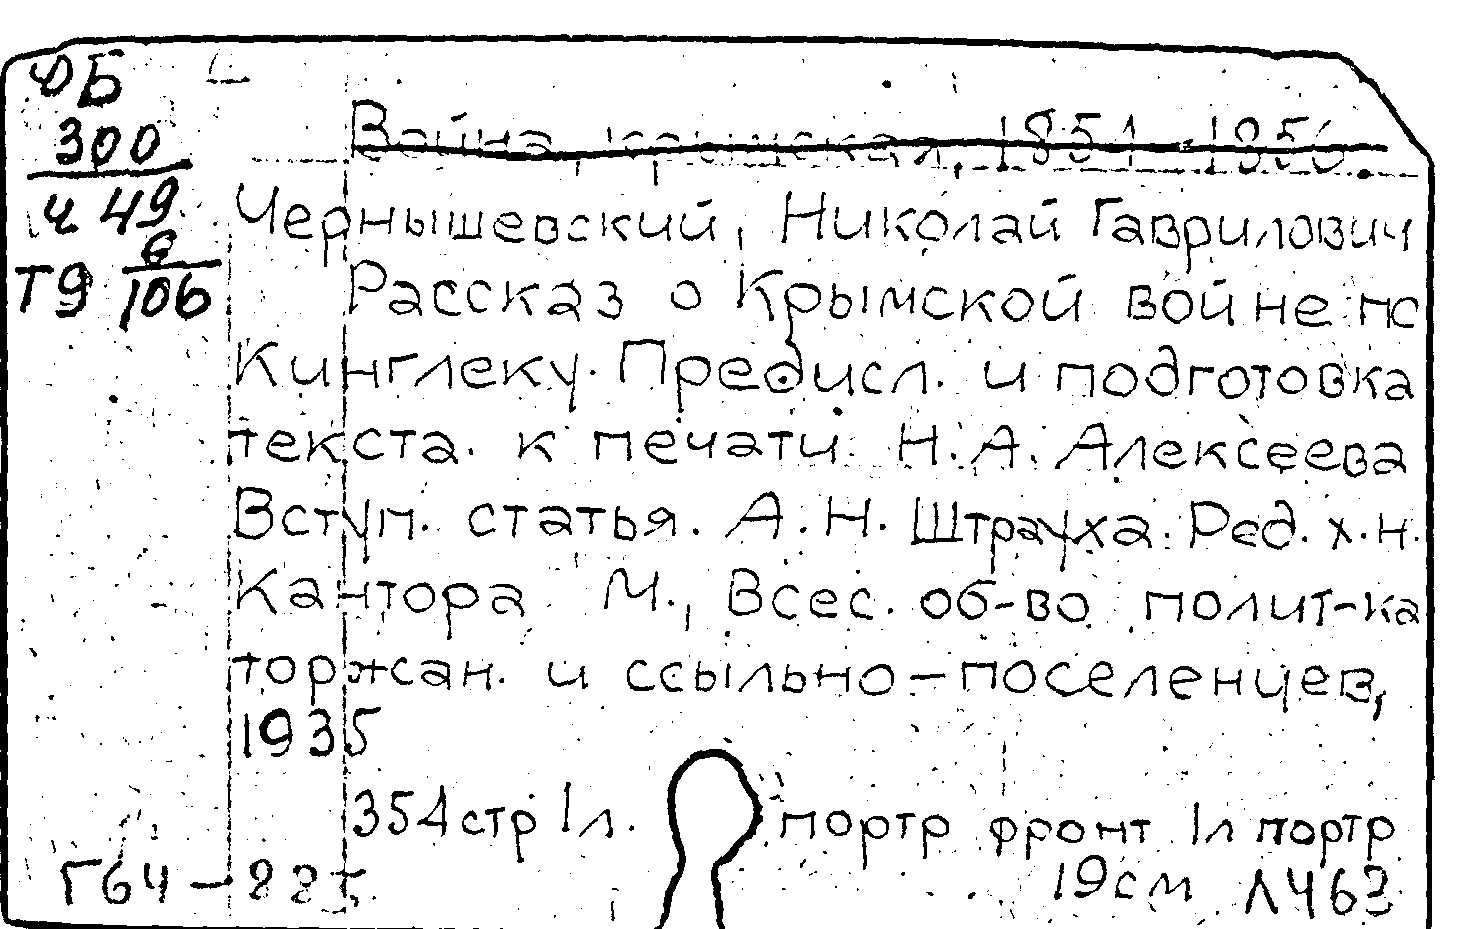 ФБ
300
Ч 49
Т9 6/106
Война, крымская, 1854-1856.
Чернышевский, Николай Гаврилович
Рассказ о Крымской войне по
Кинглеку. Предисл. и подготовка
текста. к печати Н. А. Алексеева
Вступ. статья. А. Н. Штрауха. Ред. х. н.
Кантора М., Всес. об-во полит-ка
торжан. и ссыльно-поселенцев,
1935
354 стр 1 л. портр фронт 1л портр
19 см Л463
Г64-885